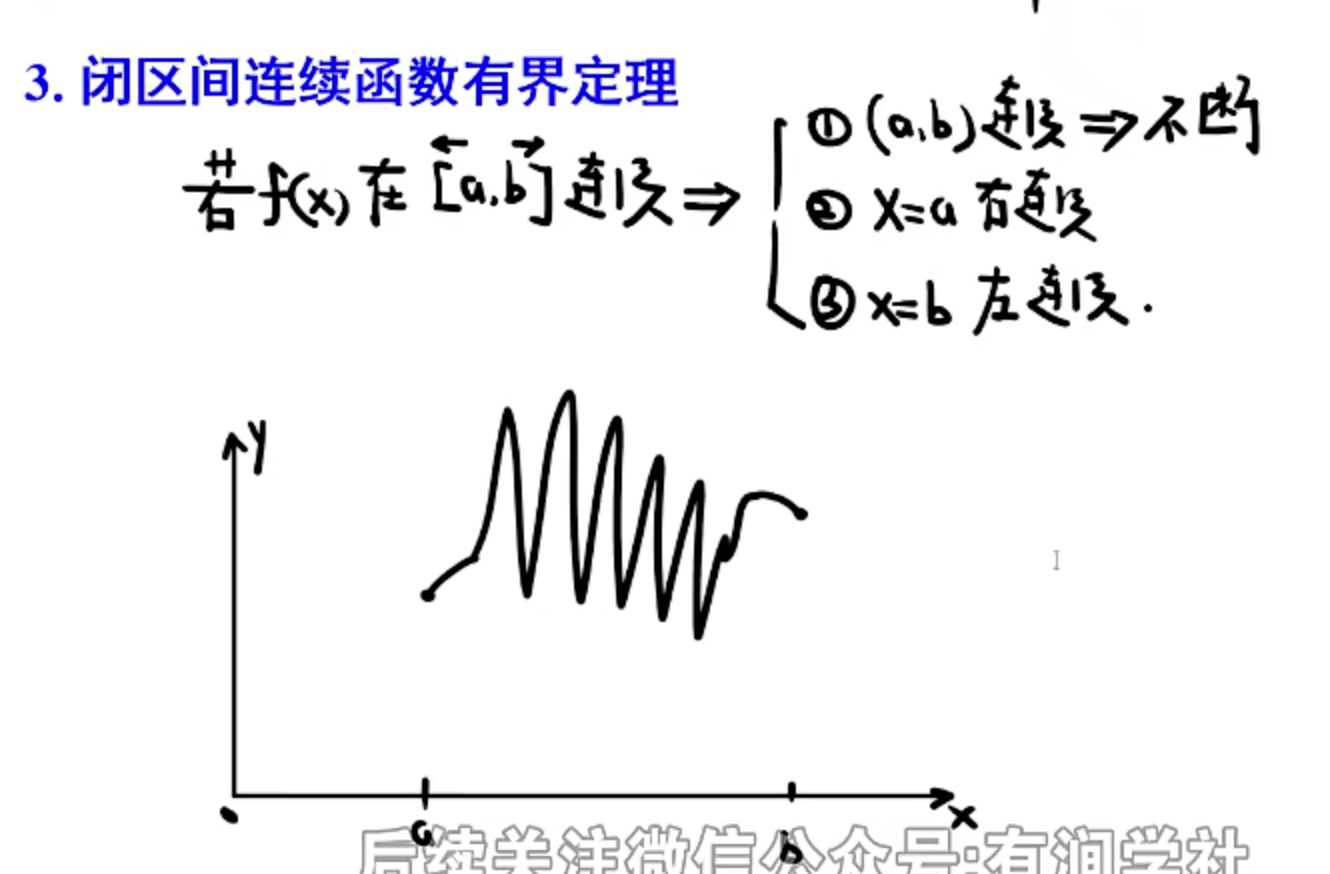 3. 闭区间连续函数有界定理
若 f(x) 在 [a,b] 连续 ⇒
① (a,b) 连续 ⇒ 不断
② x=a 右连续
③ x=b 左连续.
y
x
a
b
后续关注微信公众号:有润学社